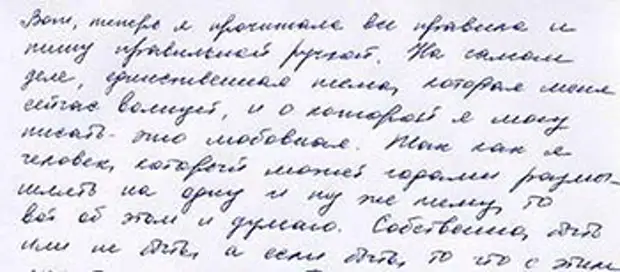 Вот, теперь я прочитала все правила и
пишу правильной ручкой. На самом
деле, единственная тема, которая меня
сейчас волнует, и о которой я могу
писать - это любовная. Так как я
человек, который может годами размы-
шлять на одну и ту же тему, то
вот об этом и думаю. Собственно, быть
или не быть, а если быть, то что с этим